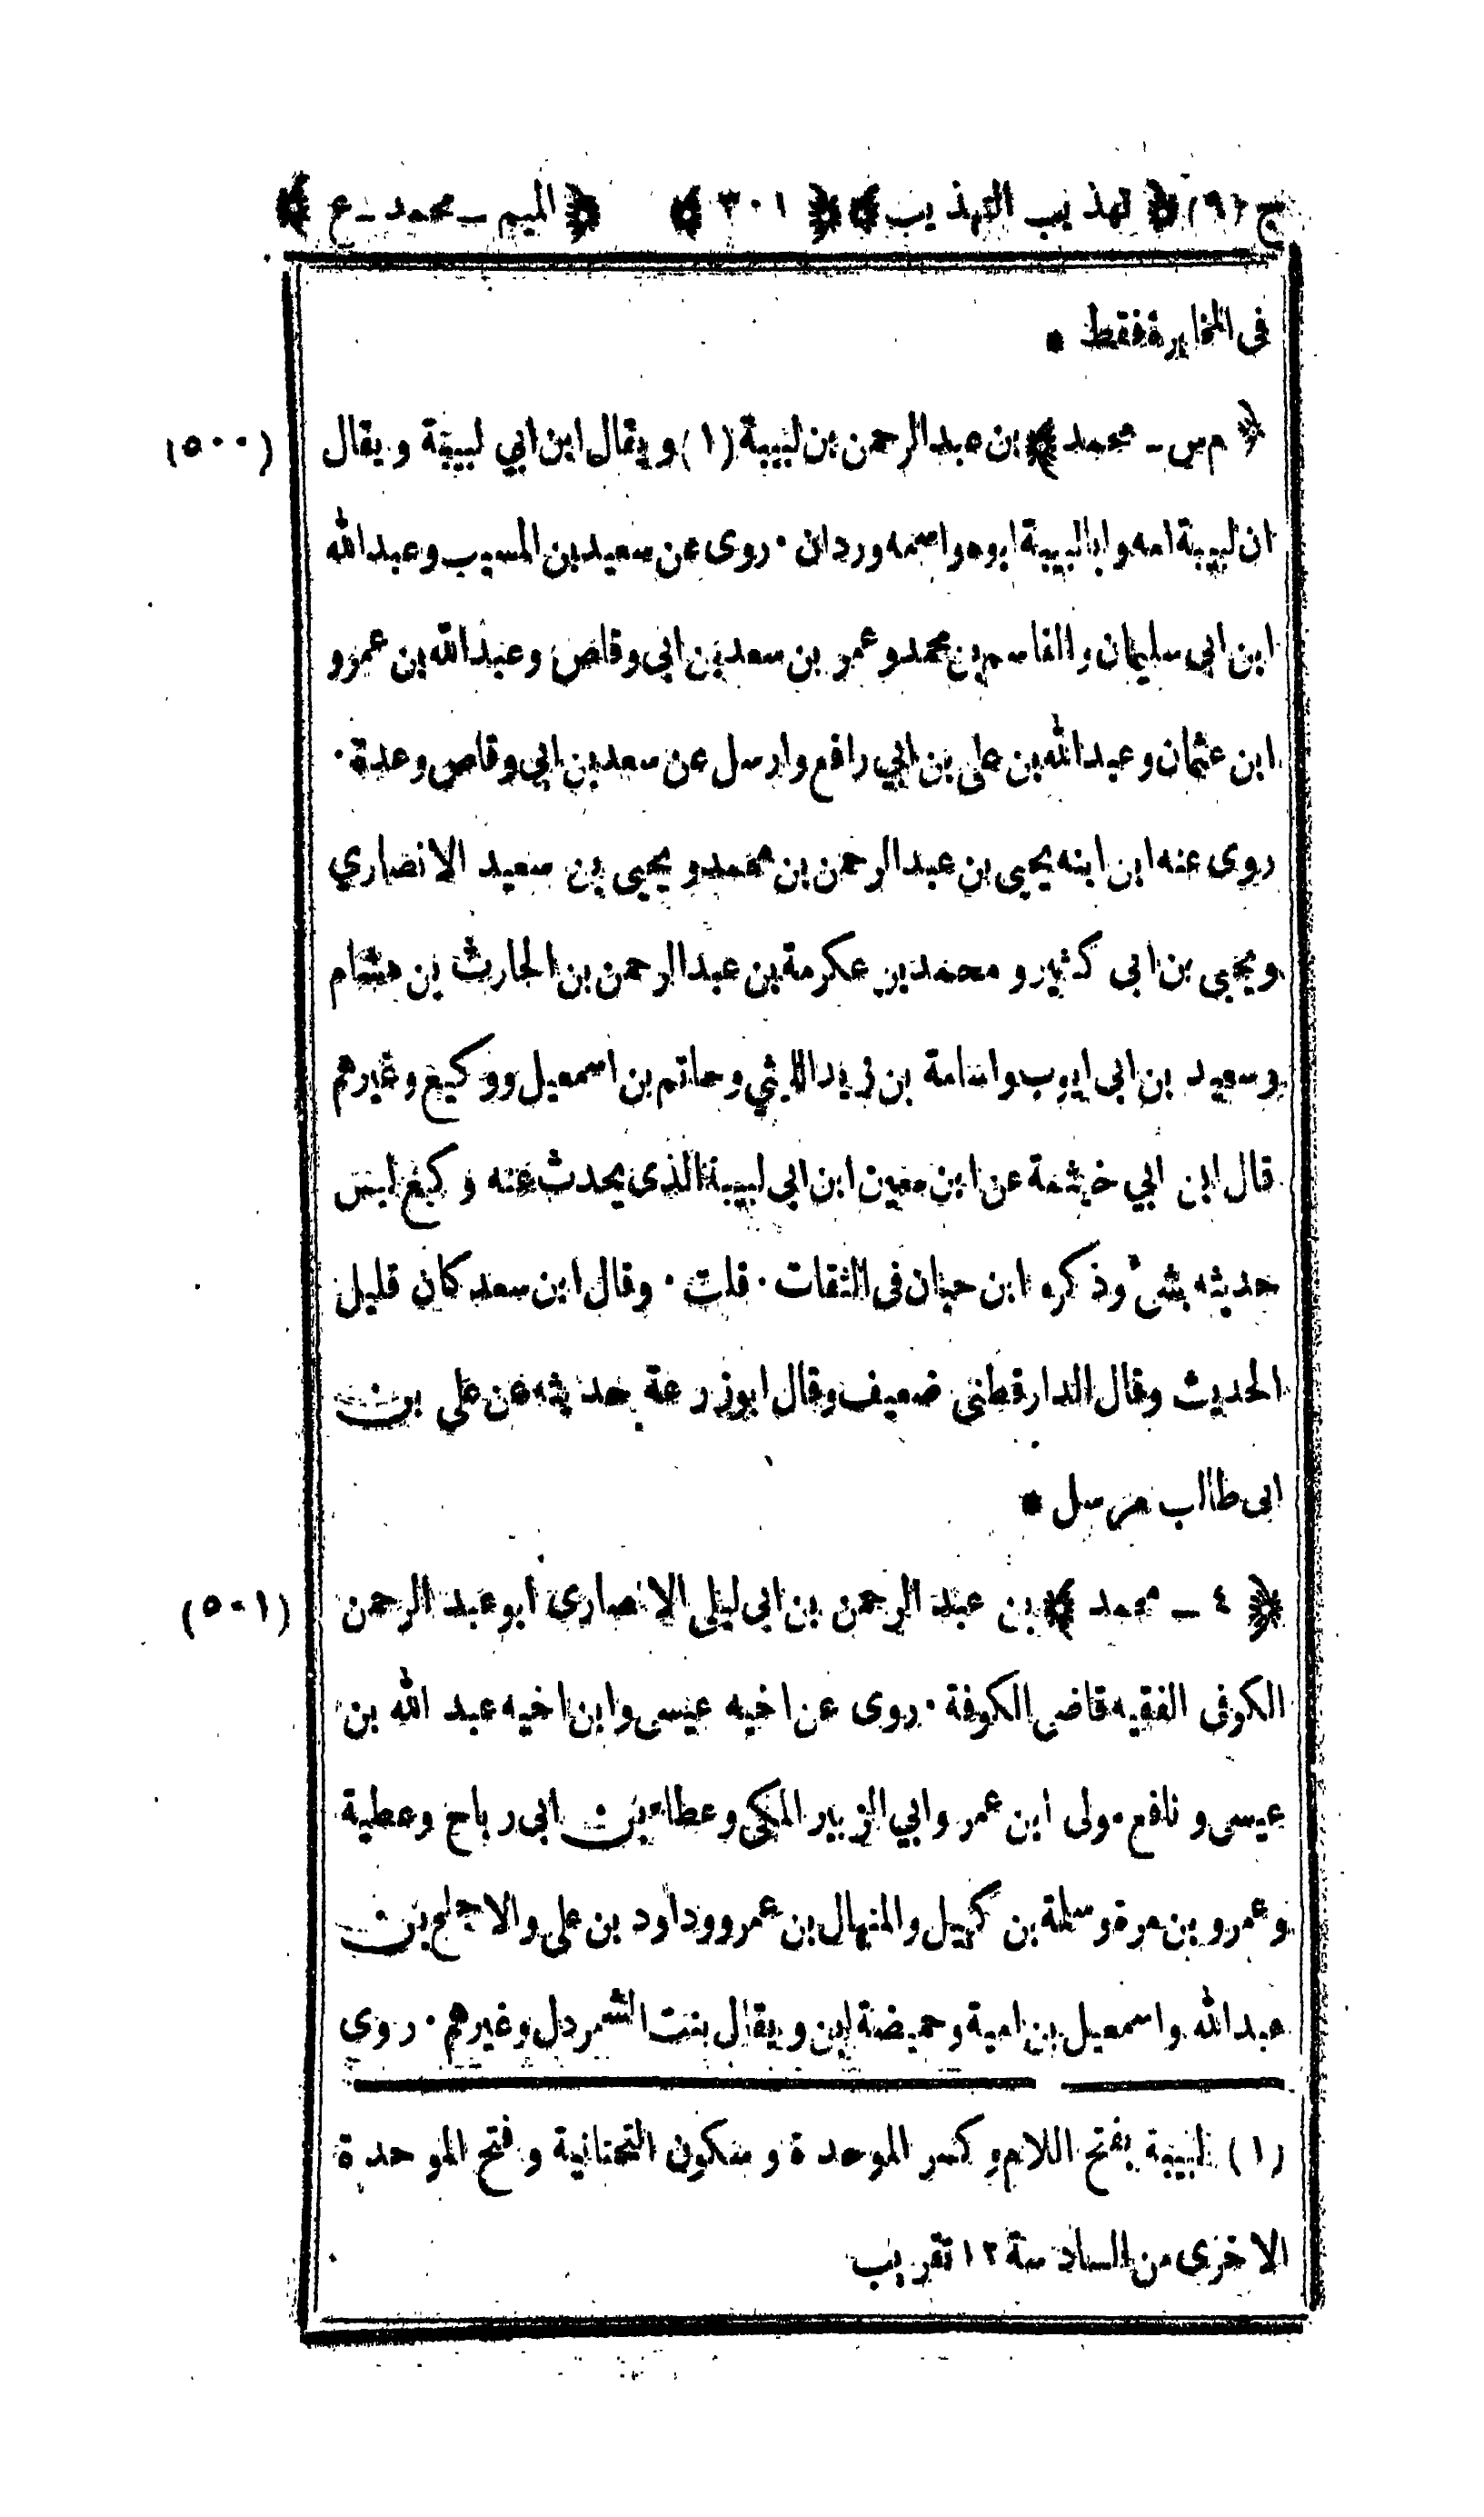 ج (٩) ﴿ تهذيب التهذيب ﴾ ﴿ ٣٠١ ﴾ ﴿ الميم - محمد - ع ﴾
فى المخابرة فقط •
﴿ م س - محمد ﴾ بن عبد الرحمن بن لبيبة (١) و يقال ابن ابي لبيبة و يقال (٥٠٠)
ان لبيبة امه وابا لبيبة ابوه واسمه وردان ٠ روى عن سعيد بن المسيب وعبد الله
ابن ابى سليمان والقاسم بن محمد وعمر بن سعد بن ابى وقاص وعبد الله بن عمرو
ابن عثمان وعبد الله بن على بن ابي رافع وارسل عن سعد بن ابي وقاص وعدة ٠
روى عنه ابن ابنه يحيى بن عبد الرحمن بن محمد و يحيى بن سعيد الانصاري
ويحيى بن ابى كثير و محمد بن عكرمة بن عبد الرحمن بن الحارث بن هشام
وسعيد بن ابى ايوب واسامة بن زيد الليثي وحاتم بن اسمعيل ووكيع وغيرهم
قال ابن ابي خيثمة عن ابن معين ابن ابي لبيبة الذى يحدث عنه وكيع ليس
حديثه بشئ وذكره ابن حبان فى الثقات ٠ قلت ٠ وقال ابن سعد كان قليل
الحديث وقال الدارقطنى ضعيف وقال ابوزرعة حديثه عن على بن
ابى طالب مرسل •
﴿ ٤ - محمد ﴾ بن عبد الرحمن بن ابى ليلى الانصارى ابو عبد الرحمن (٥٠١)
الكوفى الفقيه قاضى الكوفة ٠ روى عن اخيه عيسى وابن اخيه عبد الله بن
عيسى و نافع مولى ابن عمر وابي الزبير المكى وعطاء بن ابى رباح وعطية
وعمرو بن مرة وسلمة بن كهيل والمنهال بن عمرو وداود بن على والاجلح بن
عبد الله واسمعيل بن امية وحميضة ابن ويقال بنت الشمردل وغيرهم ٠ روى
(١) لبيبة بفتح اللام وكسر الموحدة و سكون التحتانية و فتح الموحدة
الاخرى من السادسة ١٢ تقريب